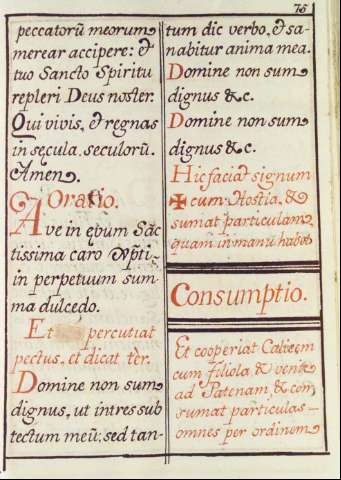 76
peccatorū meorum
merear accipere: &
tuo Sancto Spiritu
repleri Deus noster.
Qui vivis, & regnas
in sęcula seculorū.
Amen.
Oratio.
Ave in ęvum Sāc
tissima caro Xp̄ti,
in perpetuum sum-
ma dulcedo.
Et percutiat
pectus, et dicat ter.
Domine non sum
dignus, ut intres sub
tectum meū; sed tan-
tum dic verbo, & sa-
nabitur anima mea.
Domine non sum
dignus &c.
Domine non sum
dignus &c.
Hic faciat signum
✠ cum Hostia, &
sumat particulam,
quam in manu habet
Consumptio.
Et cooperiat Calicem
cum filiola &
ad Patenam, & con
sumat particulas
omnes per ordinem